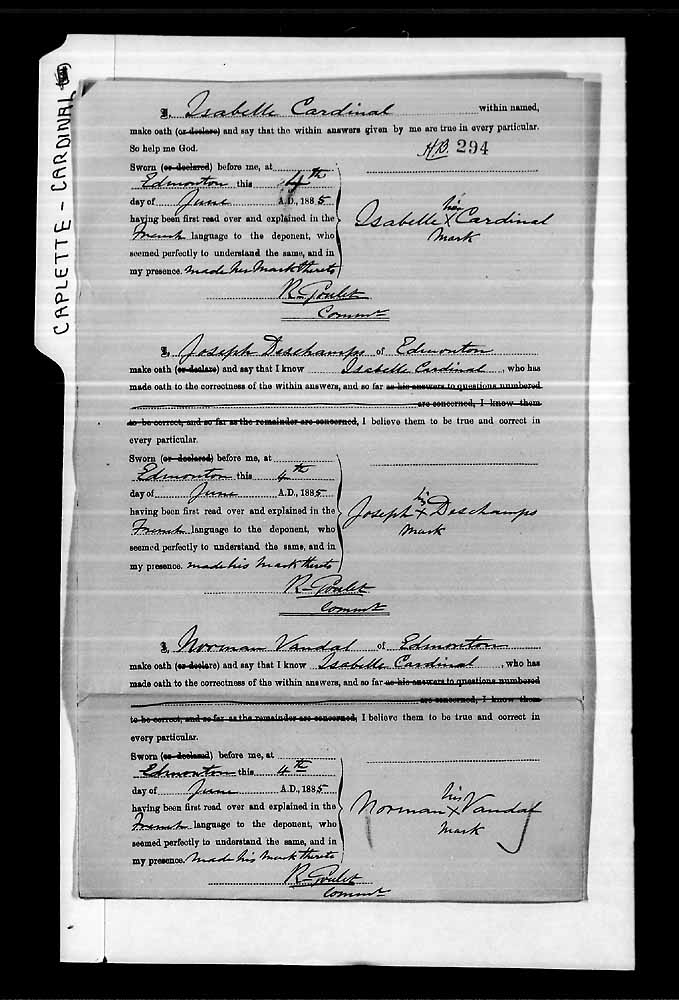 CAPLETTE - CARDINAL
I, Isabelle Cardinal within named,
make oath (or declare) and say that the within answers given by me are true in every particular.
So help me God.
HB. 294
Sworn (or declared) before me, at
Edmonton this 4th
day of June A.D., 1885
having been first read over and explained in the
French language to the deponent, who
seemed perfectly to understand the same, and in
my presence. made her mark thereto
Isabelle her X Cardinal
mark
R. Goulet
Commr
I, Joseph Deschamps of Edmonton
make oath (or declare) and say that I know Isabelle Cardinal, who has
made oath to the correctness of the within answers, and so far as his answers to questions numbered
are concerned, I know them
to be correct, and so far as the remainder are concerned, I believe them to be true and correct in
every particular.
Sworn (or declared) before me, at
Edmonton this 4th
day of June A.D., 1885
having been first read over and explained in the
French language to the deponent, who
seemed perfectly to understand the same, and in
my presence. made his mark thereto
Joseph his X Deschamps
mark
R. Goulet
Commr
I, Norman Vandal of Edmonton
make oath (or declare) and say that I know Isabelle Cardinal, who has
made oath to the correctness of the within answers, and so far as his answers to questions numbered
are concerned, I know them
to be correct, and so far as the remainder are concerned, I believe them to be true and correct in
every particular.
Sworn (or declared) before me, at
Edmonton this 4th
day of June A.D., 1885
having been first read over and explained in the
French language to the deponent, who
seemed perfectly to understand the same, and in
my presence. made his mark thereto
Norman his X Vandal
mark
R. Goulet
Commr